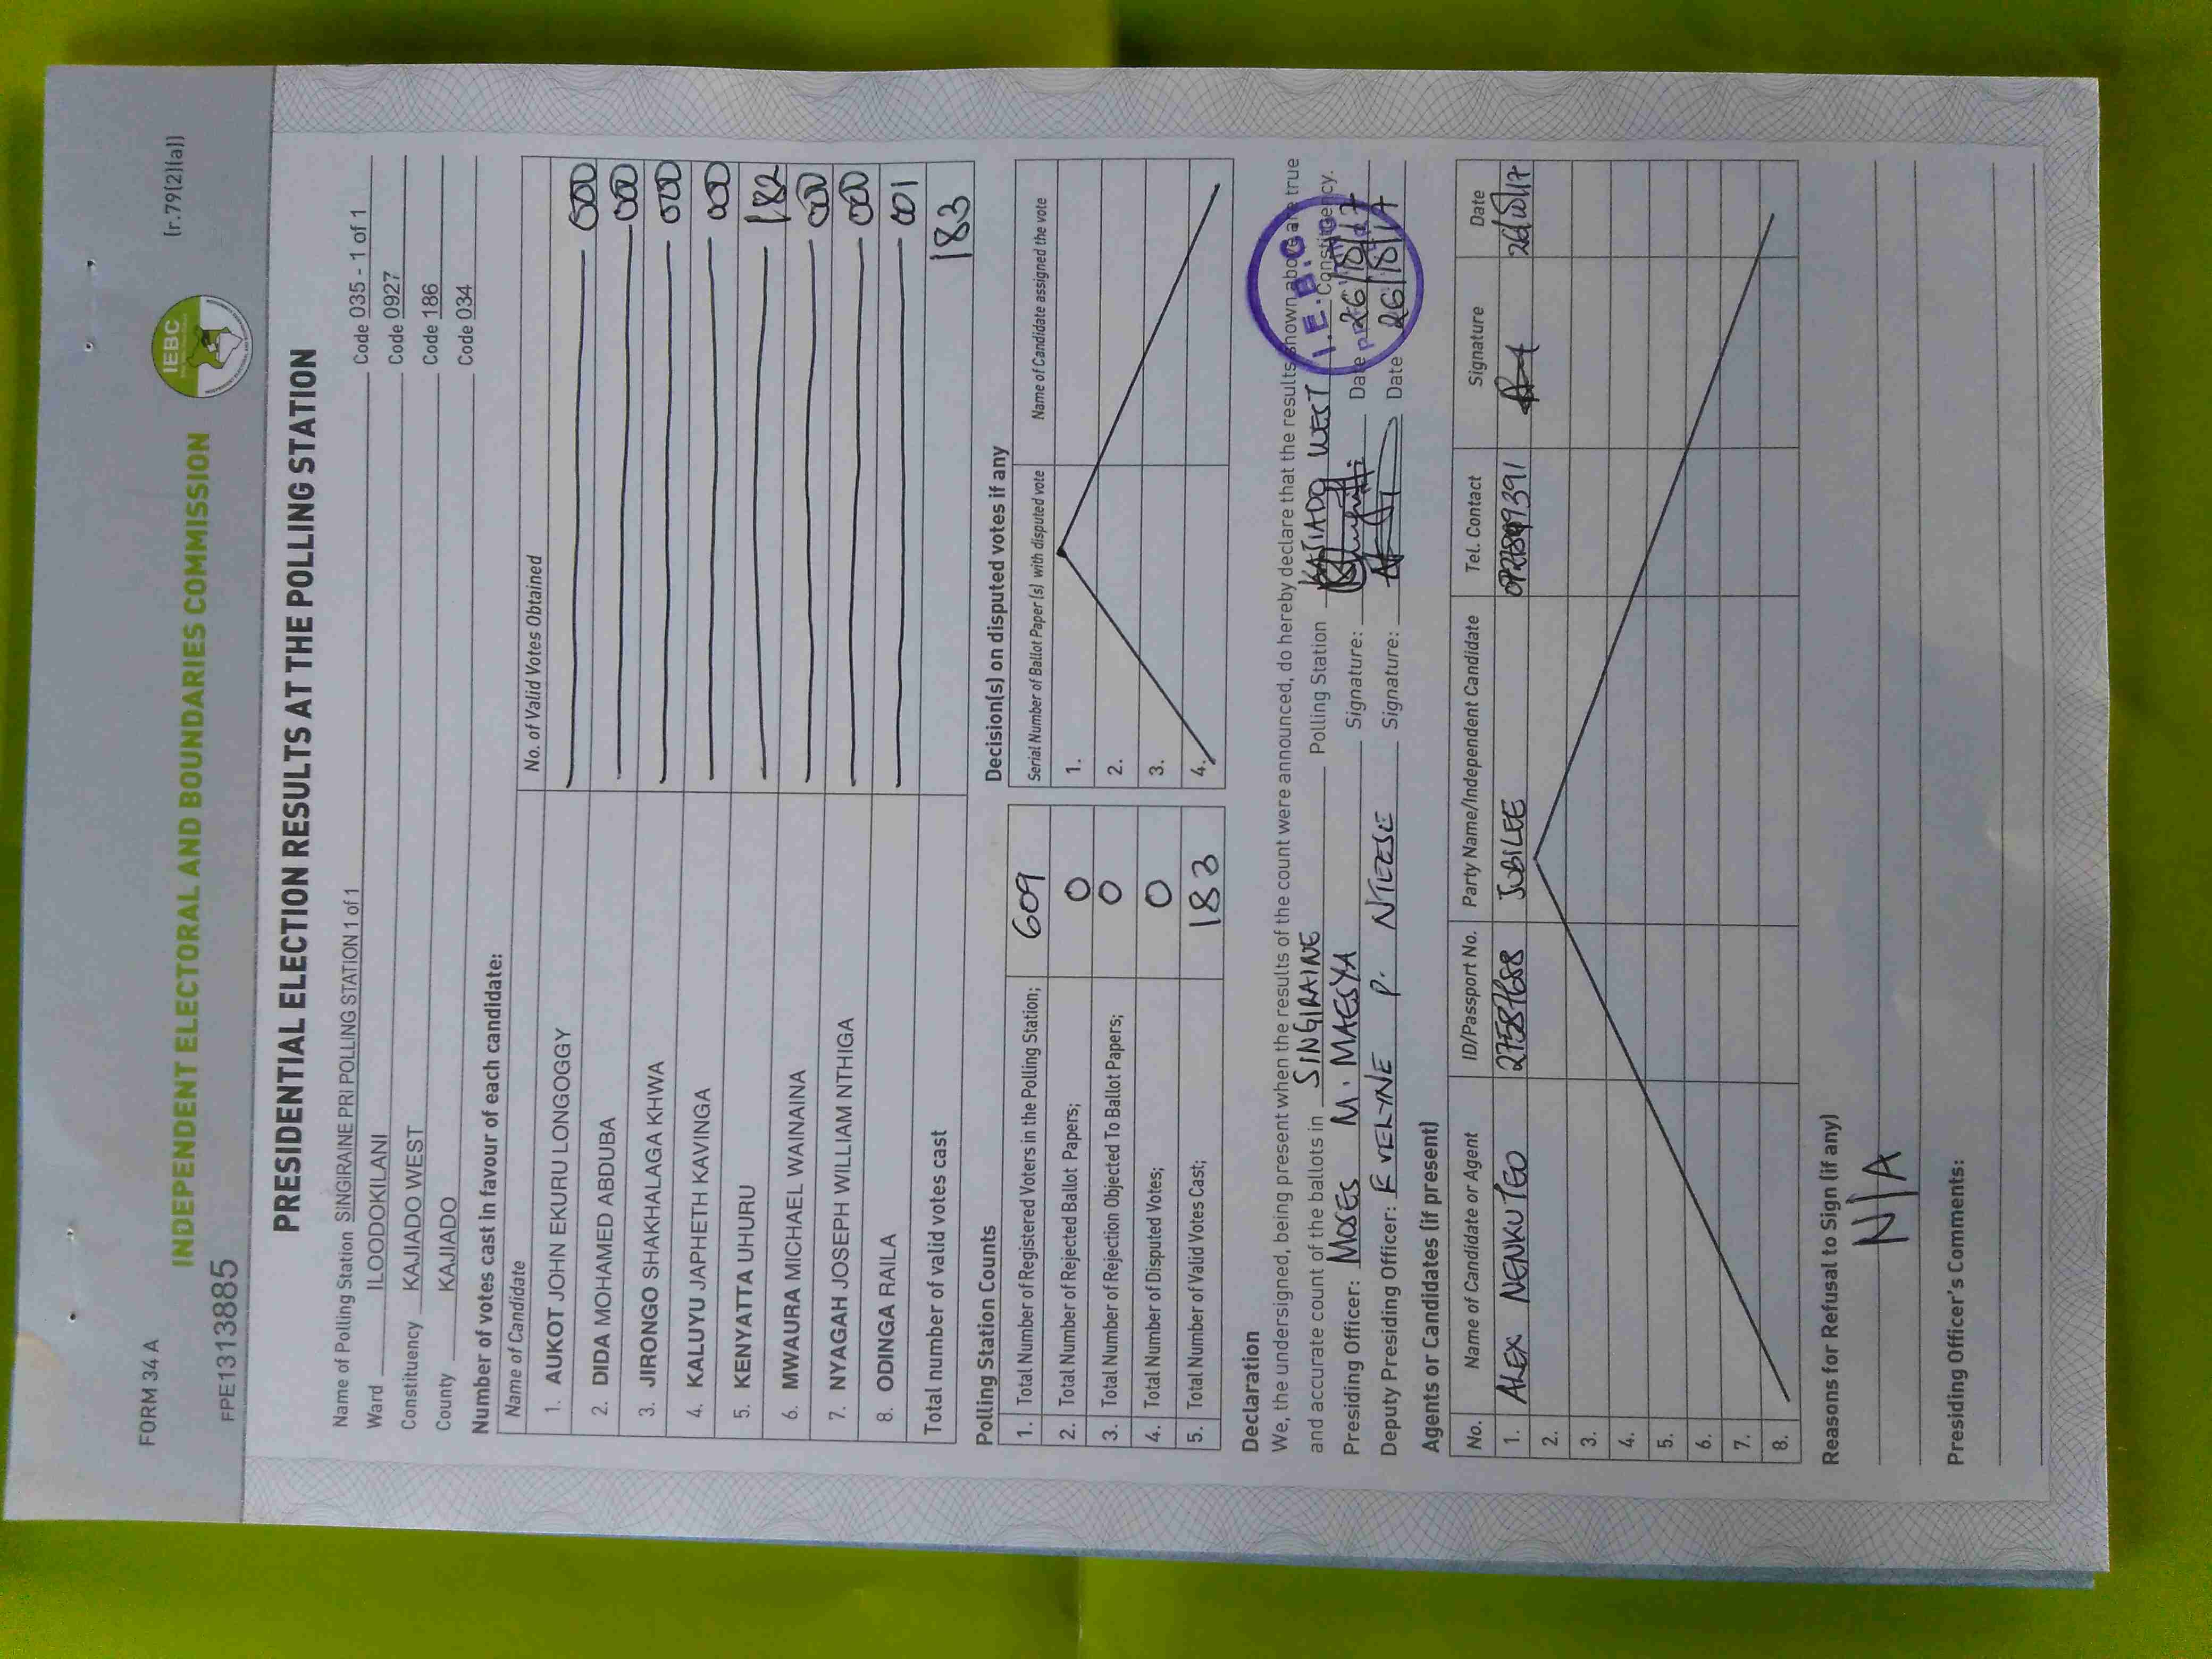 FORM 34 A
(r.79(2)(a))
IEBC
INDEPENDENT ELECTORAL AND BOUNDARIES COMMISSION
FPE1313885
PRESIDENTIAL ELECTION RESULTS AT THE POLLING STATION
Name of Polling Station SINGIRAINE PRI POLLING STATION 1 of 1 Code 035 - 1 of 1
Ward ILOODOKILANI Code 0927
Constituency KAJIADO WEST Code 186
County KAJIADO Code 034
Number of votes cast in favour of each candidate:
Name of Candidate No. of Valid Votes Obtained
1. AUKOT JOHN EKURU LONGOGGY 000
2. DIDA MOHAMED ABDUBA 000
3. JIRONGO SHAKHALAGA KHWA 000
4. KALUYU JAPHETH KAVINGA 000
5. KENYATTA UHURU 182
6. MWAURA MICHAEL WAINAINA 000
7. NYAGAH JOSEPH WILLIAM NTHIGA 000
8. ODINGA RAILA 001
Total number of valid votes cast 183
Polling Station Counts
1. Total Number of Registered Voters in the Polling Station; 609
2. Total Number of Rejected Ballot Papers; 0
3. Total Number of Rejection Objected To Ballot Papers; 0
4. Total Number of Disputed Votes; 0
5. Total Number of Valid Votes Cast; 183
Decision(s) on disputed votes if any
Serial Number of Ballot Paper (s) with disputed vote Name of Candidate assigned the vote
1.
2.
3.
4.
Declaration
We, the undersigned, being present when the results of the count were announced, do hereby declare that the results shown above are true
and accurate count of the ballots in SINGIRAINE Polling Station KAJIADO WEST Constituency.
Presiding Officer: MOSES M. MAESYA Signature: Date 26/10/17
Deputy Presiding Officer: EVELYNE P. NTEESE Signature: Date 26/10/17
I.E.B.C
Agents or Candidates (if present)
No. Name of Candidate or Agent ID/Passport No. Party Name/Independent Candidate Tel. Contact Signature Date
1. ALEX NENKUTEO JUBILEE 26/10/17
2.
3.
4.
5.
6.
7.
8.
Reasons for Refusal to Sign (if any)
N/A
Presiding Officer's Comments: